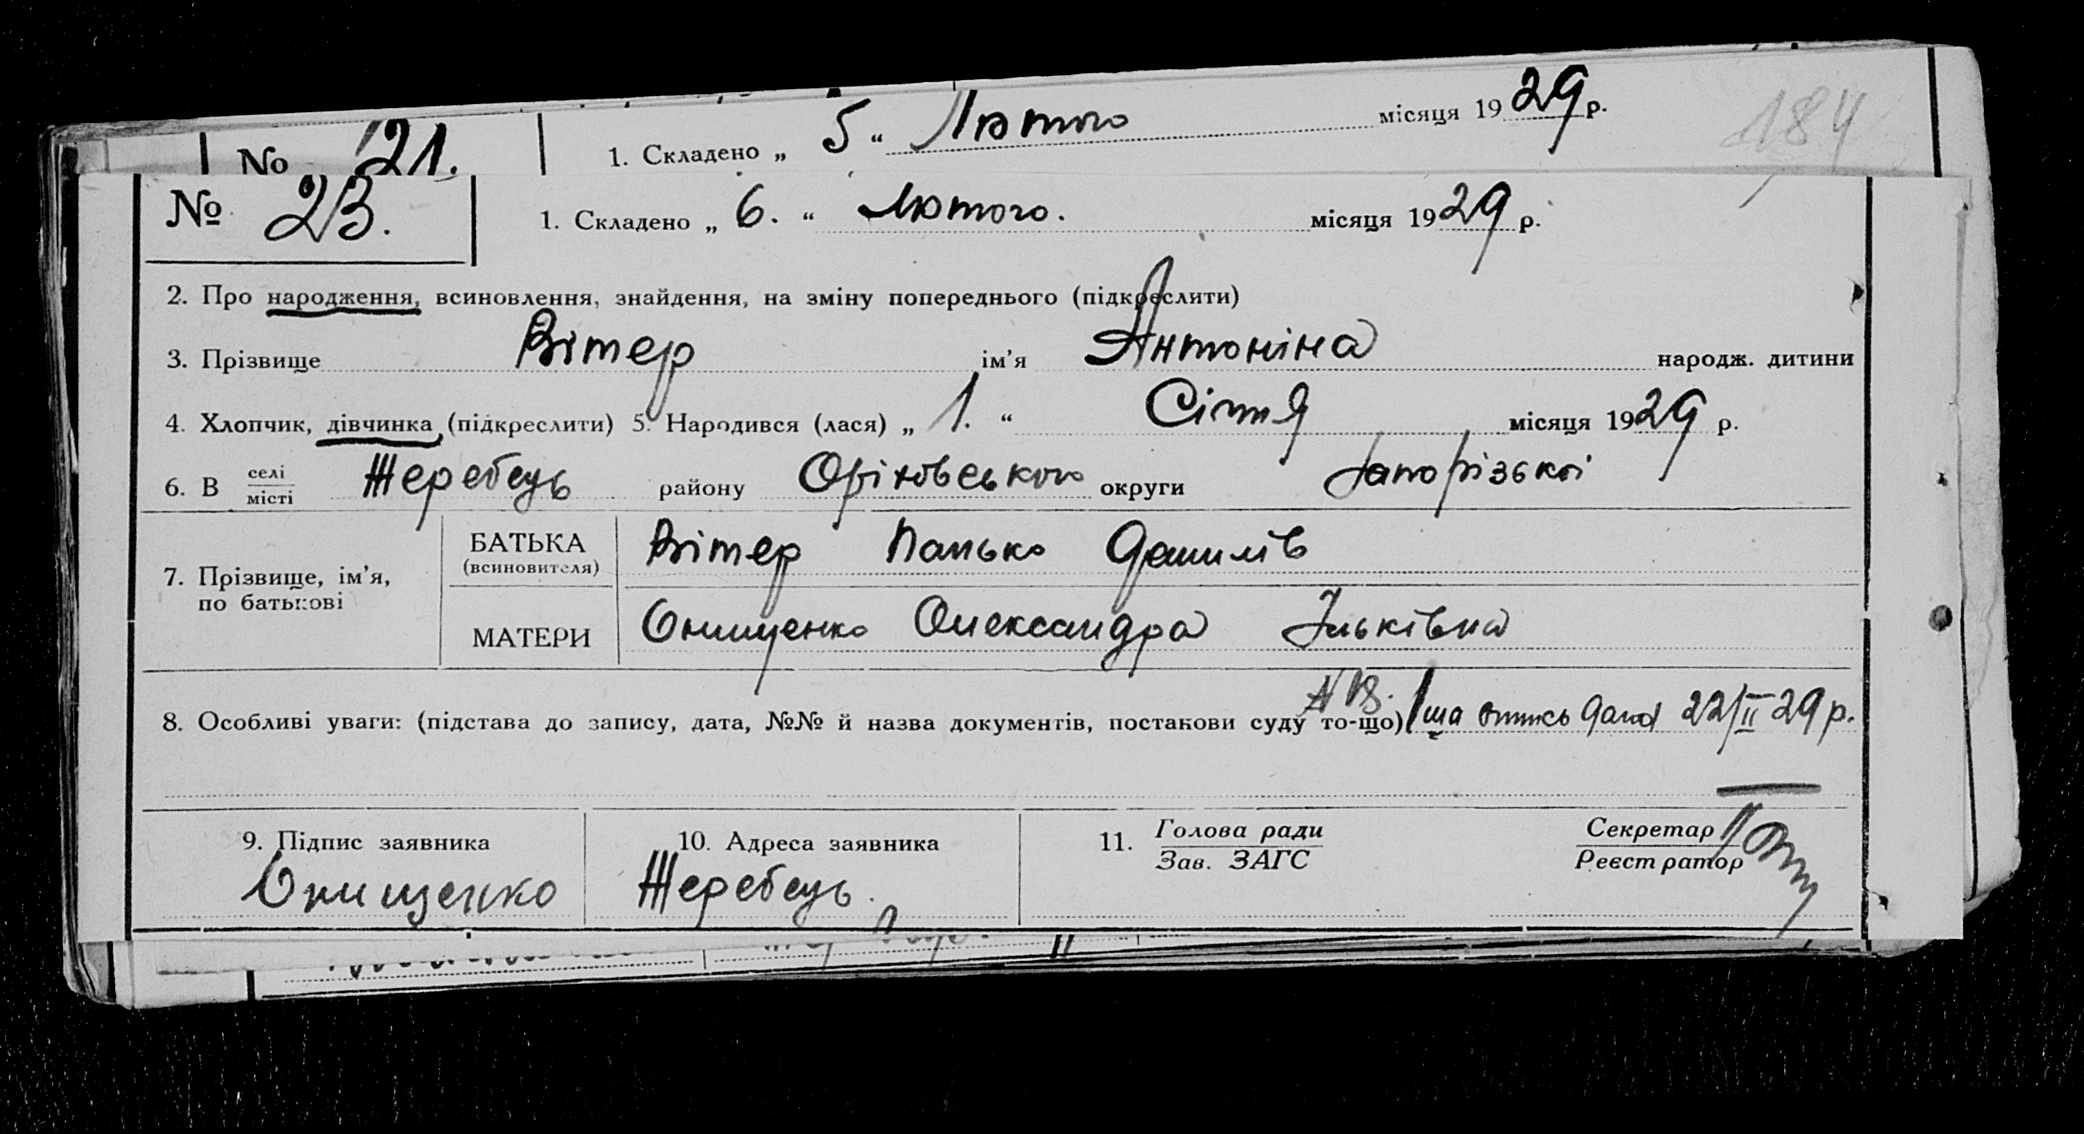 № 21. 1. Складено „ 5 “ Лютого місяця 1929 р. 184
№ 23. 1. Складено „ 6. “ Лютого. місяця 1929 р.
2. Про народження, всиновлення, знайдення, на зміну попереднього (підкреслити)
3. Прізвище Вітер ім’я Антоніна народж. дитини
4. Хлопчик, дівчинка (підкреслити) 5. Народився (лася) „ 1. “ Січня місяця 1929 р.
6. В селі/місті Жеребець району Оріховського округи Запорізької
7. Прізвище, ім’я, по батькові
БАТЬКА (всиновителя) Вітер Панько Данилів
МАТЕРИ Онищенко Олександра Ільківна
8. Особливі уваги: (підстава до запису, дата, №№ й назва документів, постанови суду то-що) випись 22/II 29 р.
9. Підпис заявника 10. Адреса заявника 11. Голова ради/Зав. ЗАГС Секретар/Реєстратор
Онищенко Жеребець.